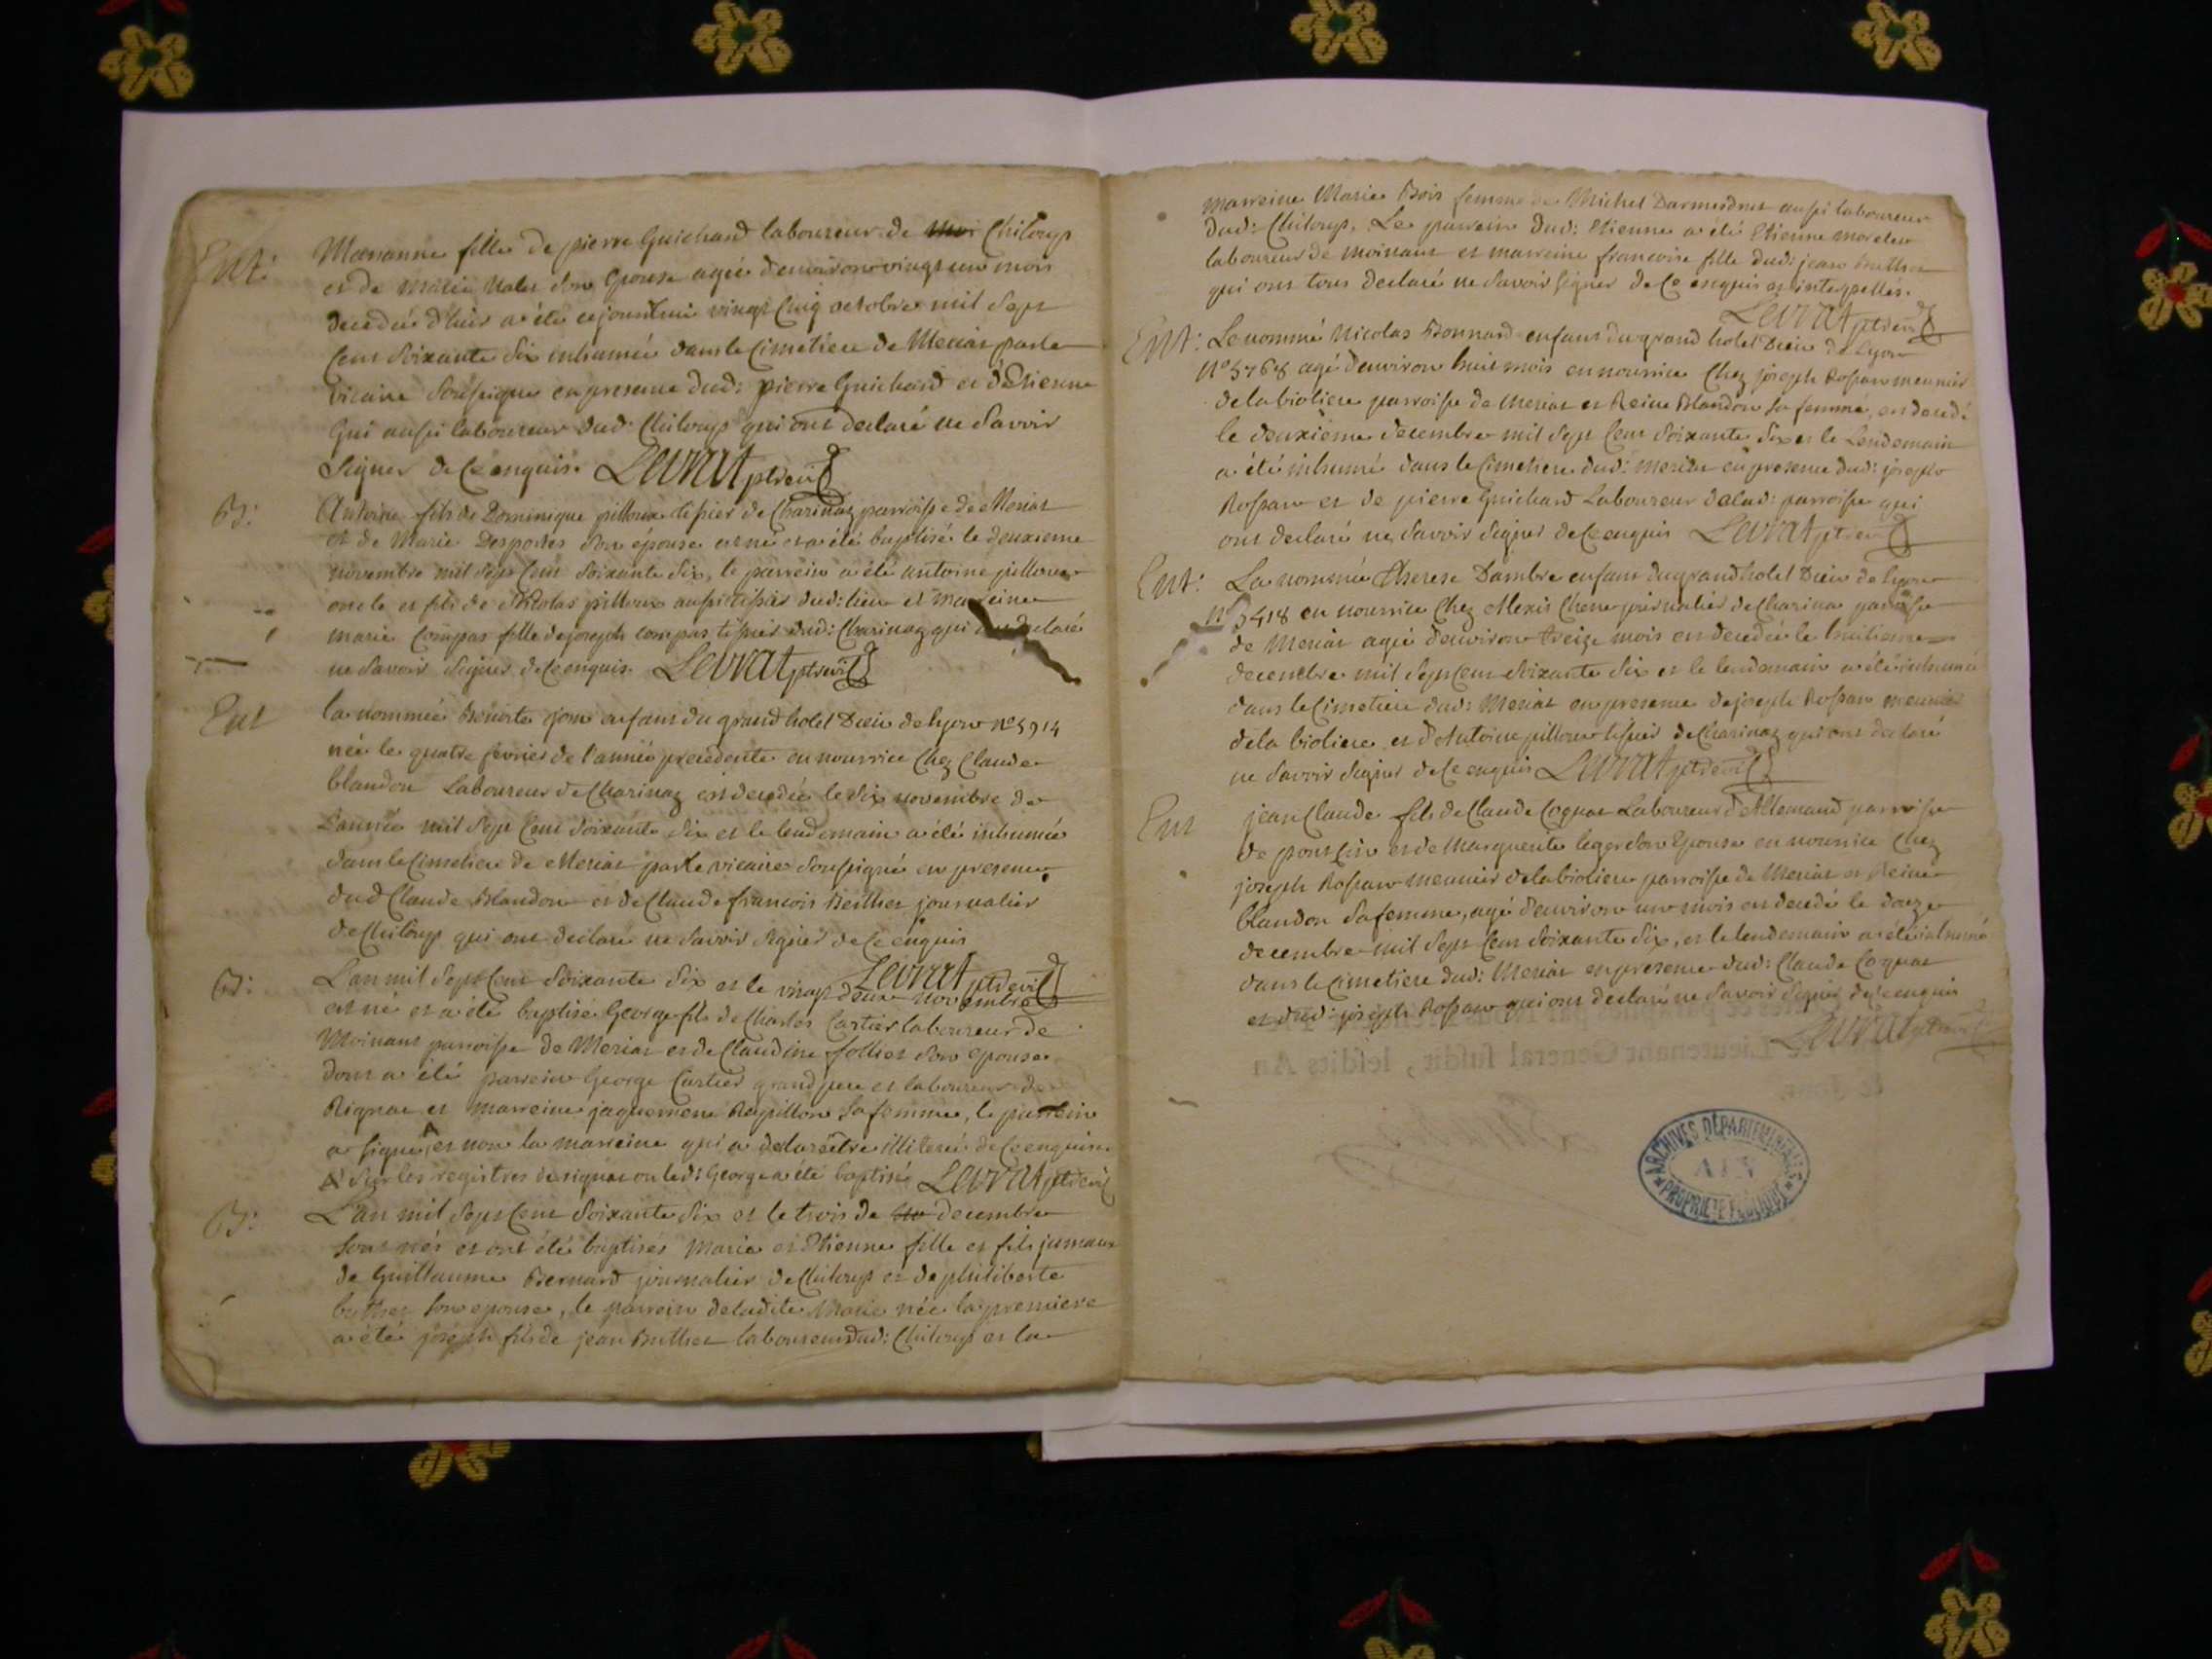 Ent:
Marianne fille de pierre Guichard laboureur de Chiloup
et de marie son Epouse agée denviron vingt un mois
decedée d'hier a été cejourdhui vingt cinq octobre mil sept
cent soixante six inhumée dans le Cimetiere de Meriat par le
vicaire soussigné en presence dud: pierre Guichard et d'Etienne
Gui aussi laboureur dud: Chiloup qui ont declaré ne savoir
signer de ce enquis. Levrat ptre vic
B:
Antoine fils de Dominique pilloux tissier de Charinaz parroisse de Meriat
et de Marie Desportes son épouse est né et a été baptisé le deuxieme
novembre mil sept cent soixante six, le parrein a été antoine pilloux
oncle et fils de Nicolas pilloux aussi tissier dud: lieu et marreine
marie Compas fille de joseph compas tissier dud: Charinaz qui declaré
ne savoir signer de ce enquis. Levrat ptre vic
Ent
la nommée Benoite enfant du grand hotel Dieu de lyon n° 5914
née le quatre fevrier de l'année precedente en nourrice Chez Claude
blandon Laboureur de Charinaz est decedée le six novembre de
L'année mil sept cent soixante six et le lendemain a été inhumée
dans le Cimetiere de Meriat par le vicaire soussigné en presence
dud Claude Blandon et de Claude francois Berthet journalier
de Chiloup qui ont declaré ne savoir signer de ce enquis
Levrat ptre vic
B:
L'an mil sept cent soixante six et le vingt deux novembre
est né et a été baptisé George fils de Charles Cartier laboureur de
Moinant parroisse de Meriat et de Claudine folliet son epouse
dont a été parrein George Cartier grand pere et laboureur de
Rignat et marreine jaquemene Rapillon sa femme, le parrein
a signé, et non la marreine qui a declaré être illiterée de ce enquise
sur les registres de rignat ou led: George a été baptisé Levrat ptre vic
B:
L'an mil sept cent soixante six et le trois de decembre
sont nés et ont été baptisés Marie et Etienne fille et fils jumeaux
de Guillaume Bernard journalier de Chiloup et de philiberte
buthet son epouse, le parrein de ladite Marie née la premiere
a été joseph fils de jean Buthet laboureur dud: Chiloup et la
marreine Marie Bois femme de Michel aussi laboureur
dud: Chiloup. Le parrein dud: Etienne a été Etienne
laboureur de moinant et marreine francoise fille dud: jean Buthet
qui ont tous declaré ne savoir signer de ce enquis et interpellés.
Levrat ptre vic
Ent:
Le nommé Nicolas Bonnard enfant du grand hotel Dieu de Lyon
N° 5768 agé d'environ huit mois en nourrice Chez joseph Rossan meunier
de la bioliere parroisse de Meriat et Reine Blandon sa femme, est decedé
le deuxieme decembre mil sept cent soixante six et le Lendemain
a été inhumé dans le Cimetiere dud: meriat en presence dud: joseph
Rossan et de pierre Guichard Laboureur de lad: parroisse qui
ont declaré ne savoir signer de ce enquis Levrat ptre vic
Ent:
La nommée Therese Dambre enfant du grand hotel Dieu de lyon
N° 5418 en nourrice Chez Alexis Chene journalier de Charina parroisse
de Meriat agée denviron treize mois est decedée le huitieme
decembre mil sept cent soixante six et le lendemain a été inhumé
dans le Cimetiere dud: Meriat en presence de joseph Rossan meunier
de la bioliere et d'Antoine pilloux tissier de Charinaz qui ont declaré
ne savoir signer de ce enquis Levrat ptre vic
Ent
jean Claude fils de Claude Cognat Laboureur d'Allemand parroisse
de poncin et de Marguerite leger son Epouse en nourrice Chez
joseph Rossan meunier de la bioliere parroisse de Meriat et Reine
blandon sa femme, agé d'environ un mois est decedé le douze
decembre mil sept cent soixante six, et le lendemain a été inhumé
dans le Cimetiere dud: Meriat en presence dud: Claude Cognat
et dud: joseph Rossan qui ont declaré ne savoir signer de ce enquis
Levrat ptre vic
Lieutenant General susdit, lesdits An
ARCHIVES DÉPARTEMENTALES
AIN
PROPRIETE PUBLIQUE